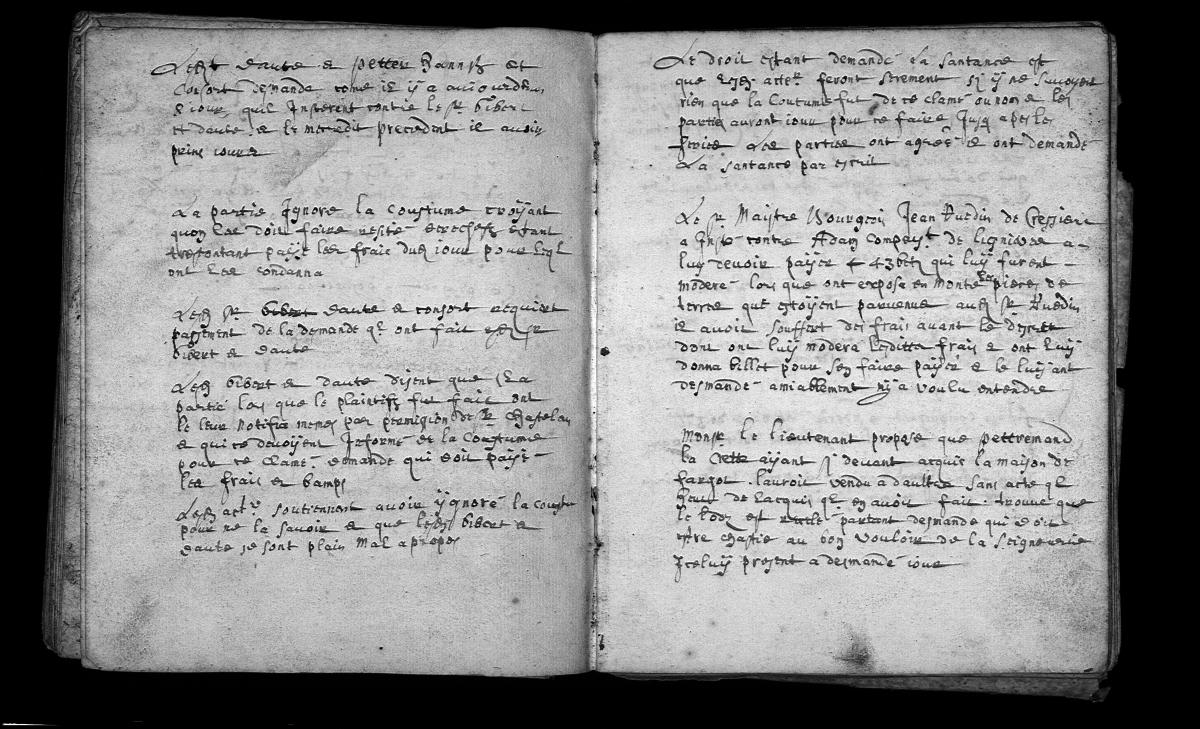 Lesd daute & petter Hannß et
Consort demande come il y a aujourdhuy
& jours quil Insterent contre le Sr Gibert
et daute & le mecredit precedent il avoit
prins jour
La partie Ignore la Coustume croyant
quon lae doit faire
payé les frais dud jour pour
ont les condanna
Lesd Sr daute & consort requiert
passement de la demande qe ont fait Sr
Gibert & daute
Lesd Gibert & daute disent que la
partie lors que le plaintifz fut fait ont
le leur Notifia memes par permission de Sr Chastelain
& qui ce devoyent Informe de la Coustume
pour ce clame demande qui doit payé
les frais & bamps
Lesd actrs soutiennent avoir ygnoré la coustume
pour ne la savoir & que lesd Gibert &
daute se sont plain mal apropos
Le droit estant demandé La santance est
que acters feront serement sy y ne savoyent
rien que la Coutume fut de ce clame ou non & les
parties auront jour pour ce faire Jusq apes les
Les parties ont agréé & ont demandé
La santance par escrit
Le Sr Maistre Bourgeois Jean Ruedin de Cressier
a Inste contre Adam de lignieres a
luy devoir payer 43 qui luy furent
moderé lors que ont exposa en monte les pieces de
terre que estoyent parvenue aud Sr Ruedin
il avoit souffert des frais avant le descret
dont ont luy modera lesditte frais & ont luy
donna billet pour sen faire payer & le luy ant
desmandé amiablement ny a voulu entendre
Monsr le lieutenant propose que pettremand
la ayant Cy devant acquis la maison de
fargot lauroit vendu a daultre sans acte qe
de lacquis qe en avoit fait trouve que
le est partant desmande qui doit
estre chastié au bon vouloir de la Seigneurie
Jceluy present a desmandé jour